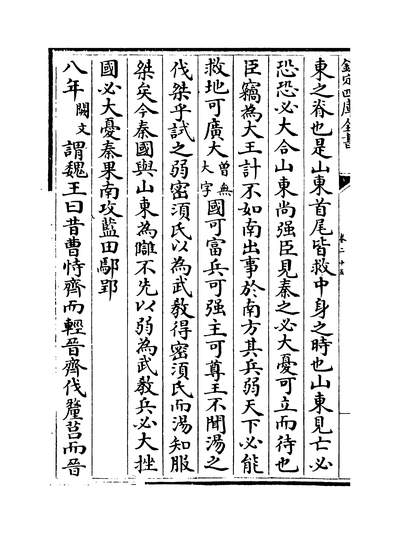 欽定四庫全書
卷二十五
東之脊也是山東首尾皆救中身之時也山東見亡必
恐恐必大合山東尚强臣見秦之必大憂可立而待也
臣竊為大王計不如南出事於南方其兵弱天下必能
救地可廣大曾無大字國可富兵可强主可尊王不聞湯之
伐桀乎試之弱密須氏以為武敎得密須氏而湯知服
桀矣今秦國與山東為讎不先以弱為武敎兵必大挫
國必大憂秦果南攻藍田鄢郢
八年闕文謂魏王曰昔曹恃齊而輕晉齊伐釐莒而晉